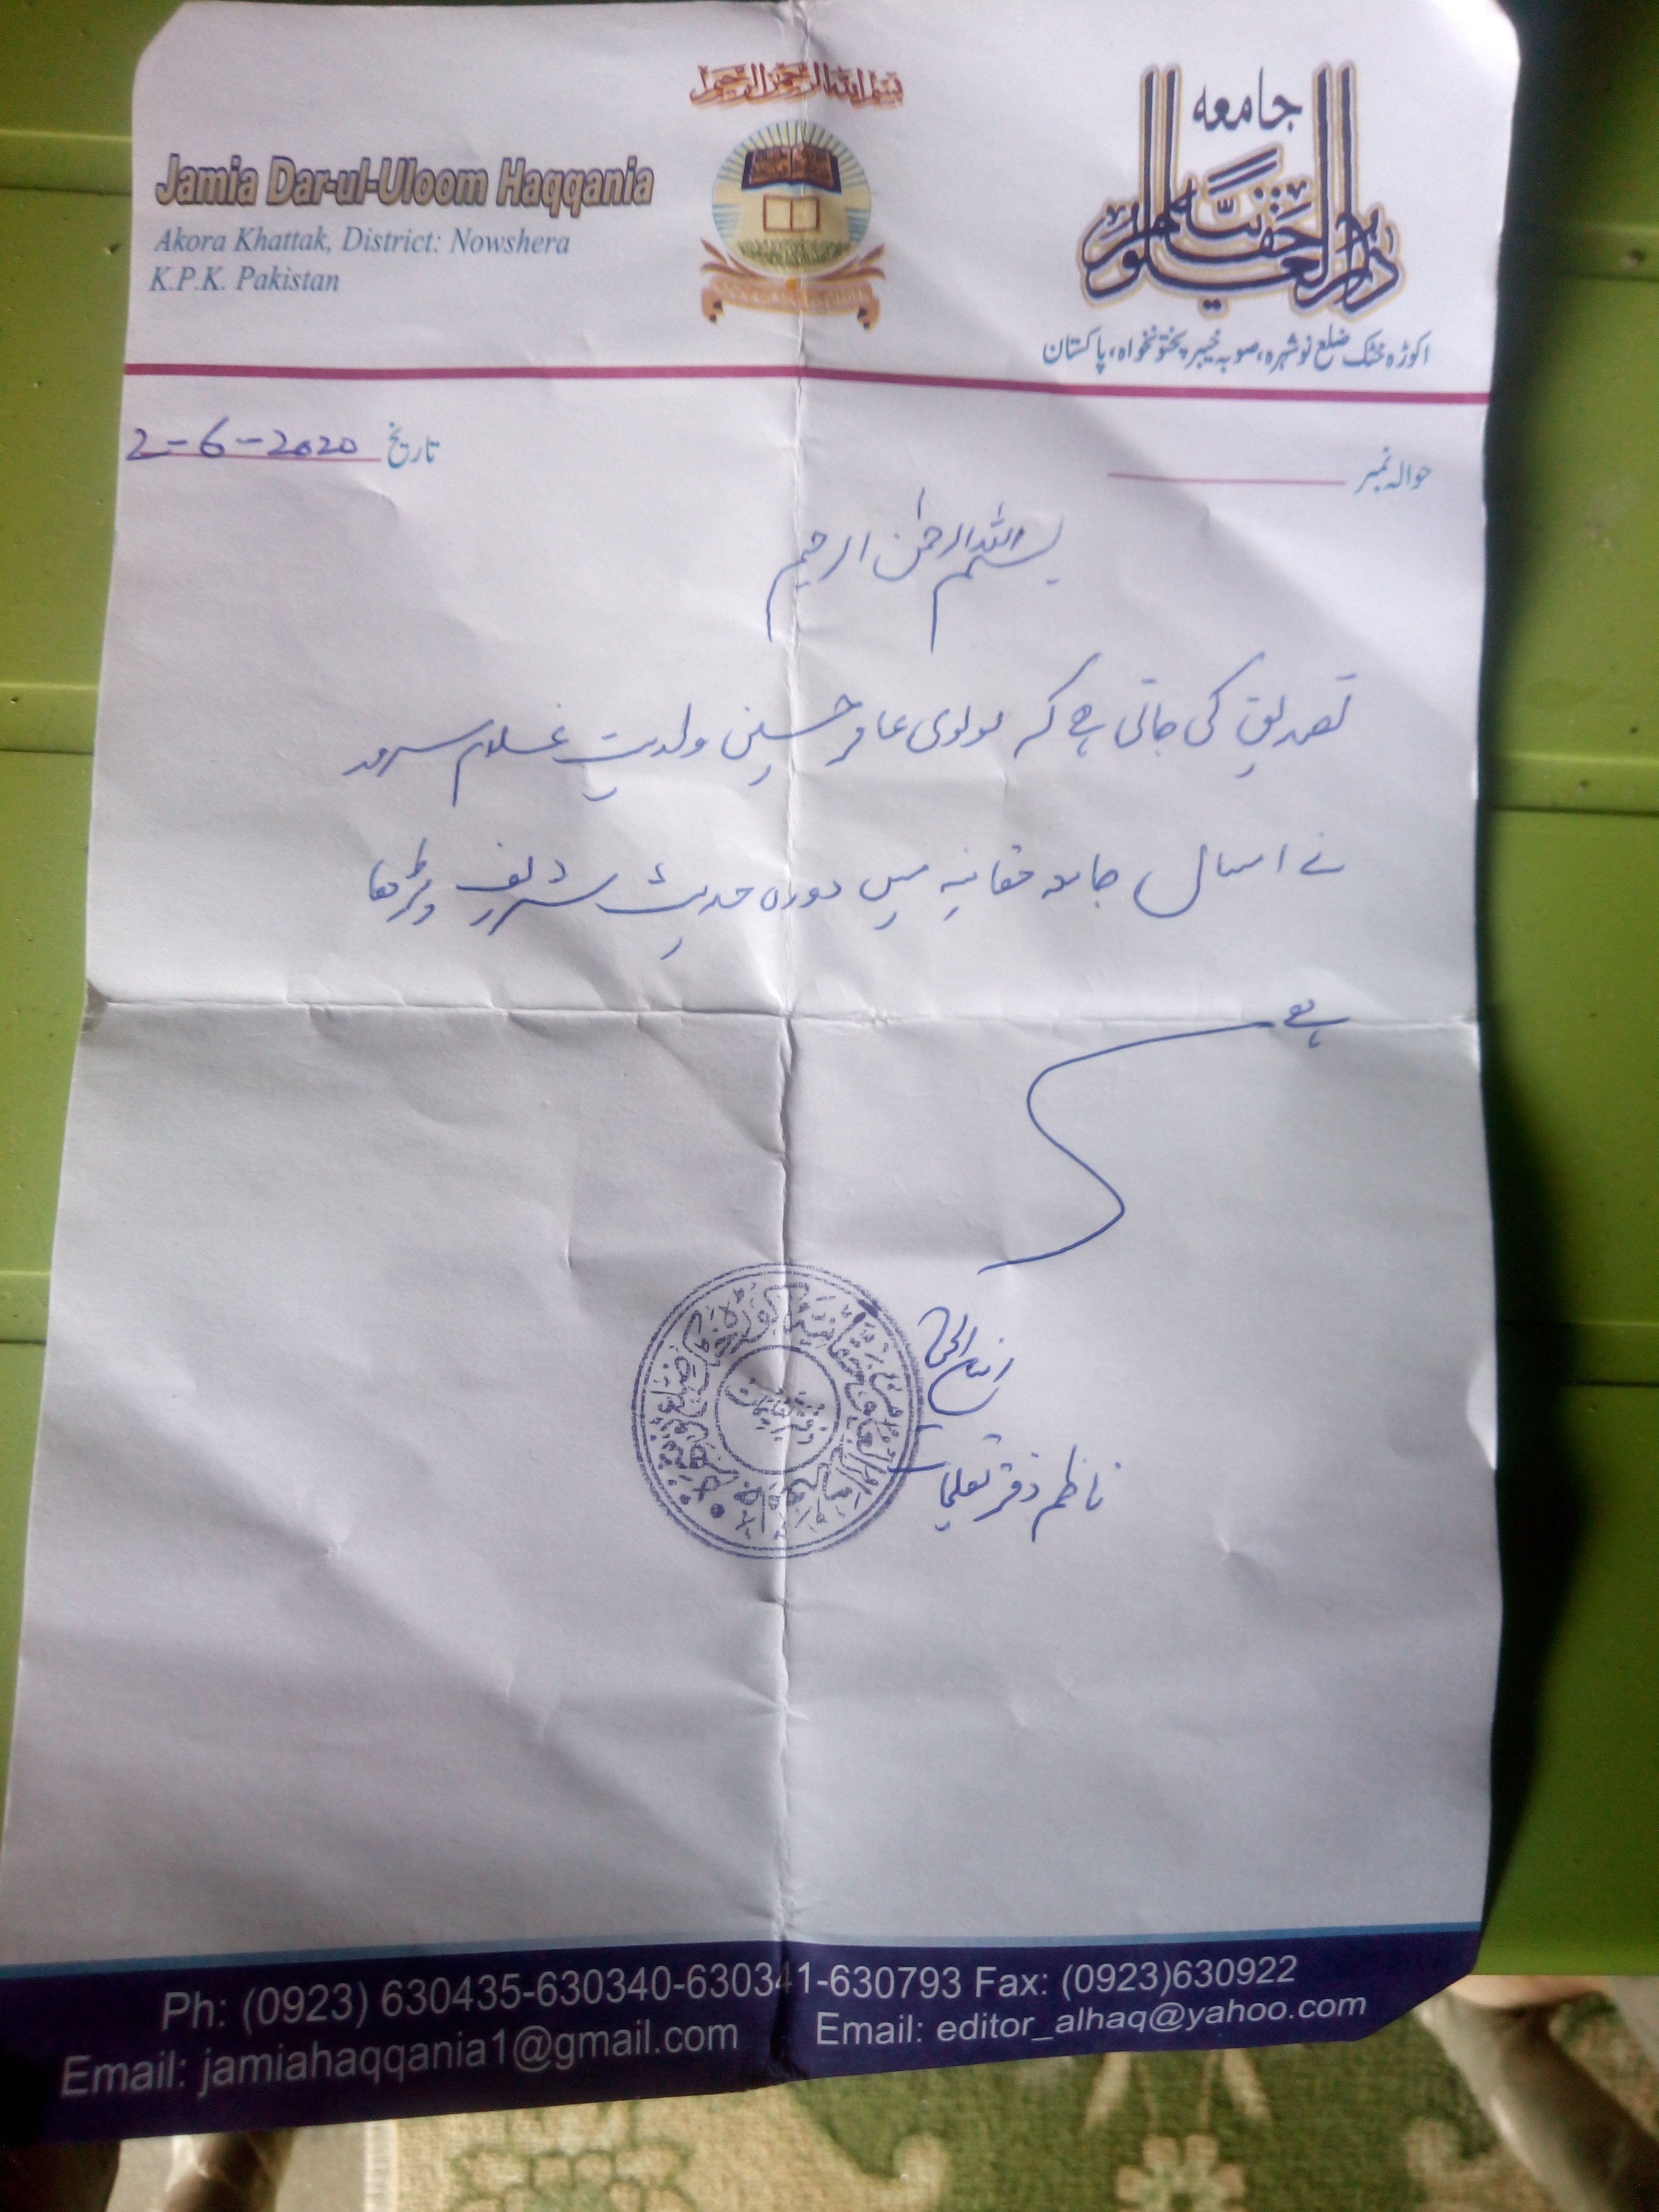 بسم الله الرحمن الرحيم
Jamia Dar-ul-Uloom Haqqania
Akora Khattak, District: Nowshera
K.P.K. Pakistan
جامعہ
دارالعلوم حقانیہ
اکوڑہ خٹک ضلع نوشہرہ، صوبہ خیبر پختونخواہ، پاکستان
تاریخ 2-6-2020
حوالہ نمبر
بسم اللہ الرحمن الرحیم
تصدیق کی جاتی ہے کہ مولوی عامر حسین ولدیت غلام سرور
نے امسال جامعہ حقانیہ میں دورہ حدیث شریف پڑھا
ہے
ناظم دفتر تعلیمات
Ph: (0923) 630435-630340-630341-630793 Fax: (0923)630922
Email: jamiahaqqania1@gmail.com Email: editor_alhaq@yahoo.com